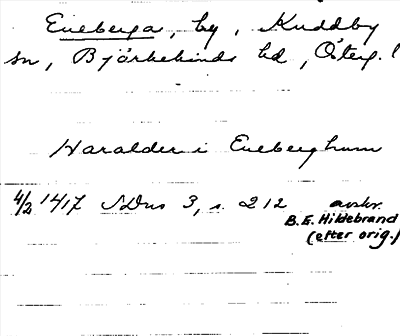 Eneberga, by, Kuddby
sn, Björkekinds hd, Östeg. l
Haralder i Eneberghum
4/2 1417 SDns 3, s. 212 avskr.
B. E. Hildebrand
(efter orig.)